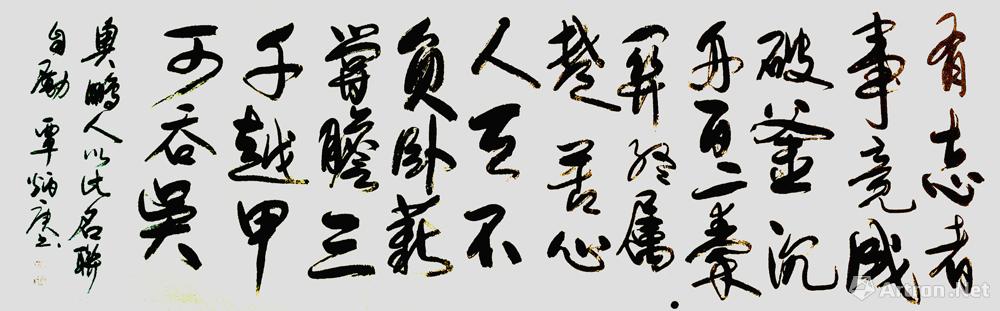 有志者
事竟成
破釜沉
舟百二秦
關終屬
楚苦心
人天不
負卧薪
嘗膽三
千越甲
可吞吴
與鵬人以此名聯
自勵 覃炳庚书
Artron.Net